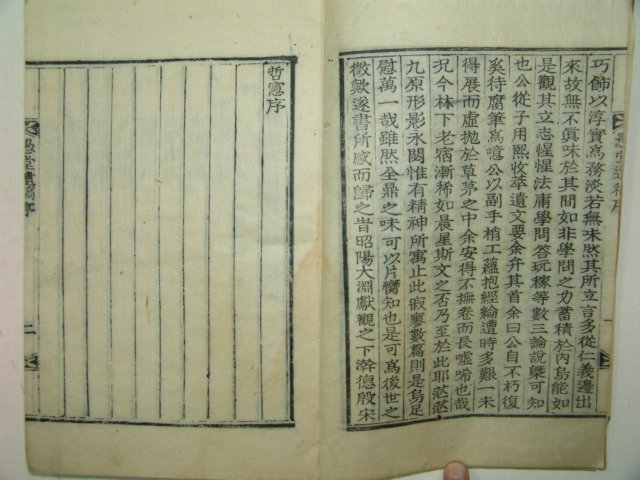 巧飾以淳實爲務淡若無味然其所立言多從仁義邊出
來故無不眞味於其間如非學問之力蓄積於內烏能如
是觀其立志惺惺法庸學問答玩稼等數三論說槩可知
也公從子用熙收萃遺文要余弁其首余曰公自不朽復
奚待腐筆爲噫公以副手梢工蘊抱經綸遭時多艱一未
得展而虛抛於草茅之中余安得不撫卷而長噓唏也哉
況今林下老宿漸稀如晨星斯文之否乃至於此耶茫茫
九原形影永閟惟有精神所寓止此寂寥數篇則是烏足
慰萬一哉雖然全鼎之味可以片臠知也是可爲後世之
徵歟遂書所感而歸之旹昭陽大淵獻觀之下澣德殷宋
哲憲序
愚堂遺稿序
二